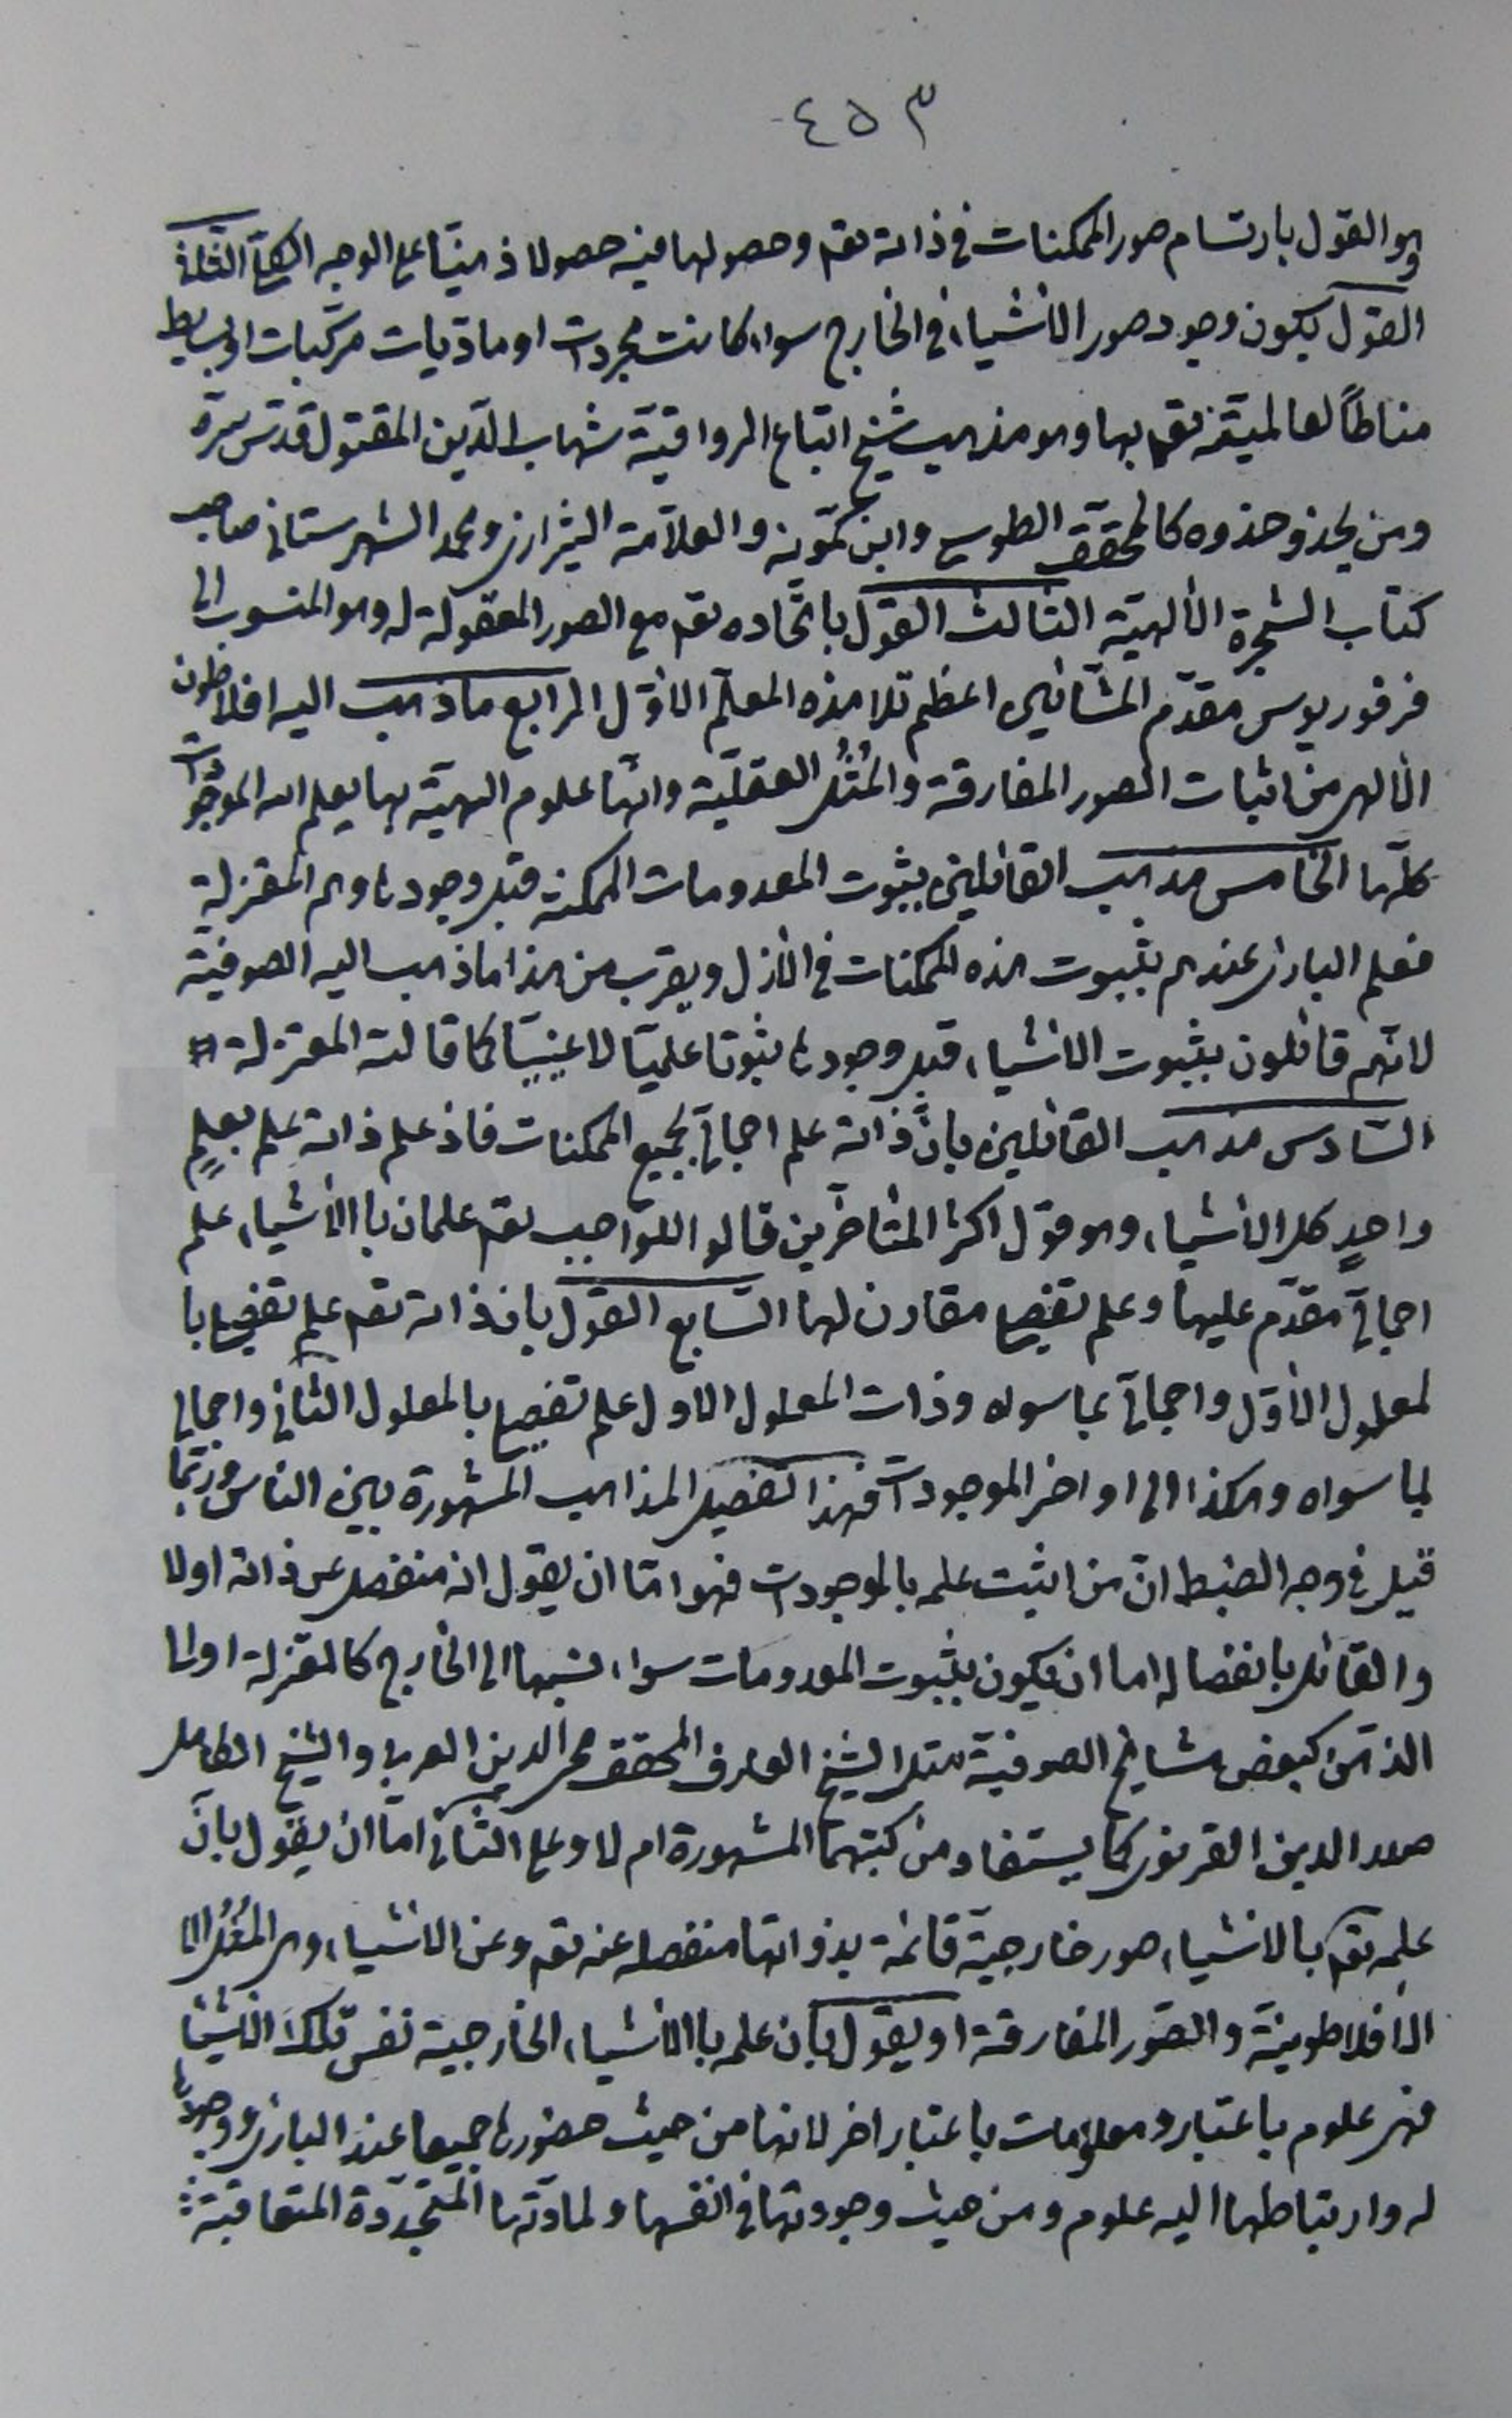 ٤٥٣
وهو القول بارتسام صور الممكنات فى ذاته تعم وحصولها فيه حصولا ذهنيّا على الوجه الكلّى الثانى
القول بكون وجود صور الأشياء فى الخارج سواء كانت مجردات او ماديات مركّبات او بسايط
مناطاً لعالميّته تعم بها وهو مذهب شيخ اتباع الرواقيّة شهاب الدّين المقتول قدّس سرّه
ومن يحذو حذوه كالمحقّق الطوسى وابن كمّونه والعلاّمة الشيرازى ومحمد الشهرستانى صاحب
كتاب الشجرة الألهيّة الثالث القول باتّحاده تعم مع الصور المعقولة له وهو المنسوب الى
فرفوريوس مقدّم المشّائين اعظم تلامذه المعلّم الأوّل الرابع ماذهب اليه افلاطون
الألهى من اثبات الصور المفارقة والمُثُل العقليّة وانّها علوم الهيّة بها يعلم الله الموجودات
كلّها الخامس مذهب القائلين بثبوت المعدومات الممكنه قبل وجودها وهم المعتزلة
فعلم البارى عندهم بثبوت هذه الممكنات فى الأزل ويقرب من هذا ماذهب اليه الصوفيّة
لانّهم قائلون بثبوت الاشياء قبل وجودها ثبوتا علميّا لاعينيّا كما قالته المعتزلة
السّادس مذهب القائلين بانّ ذاته علم اجمالىّ بجميع الممكنات فاذ علم ذاته علم بعلمٍ
واحدٍ كل الأشياء وهو قول اكثر المتأخّرين قالوا للواجب تعم علمان باالأشياء علم
اجمالىّ مقدّم عليها وعلم تفصيلى مقارن لها السّابع القول بان ذاته تعم علم تفصيلى با
لمعلول الأوّل واجمالىّ بما سواه وذات المعلول الاول علم تفصيلى بالمعلول الثانى واجمالى
بما سواه وهكذا الى اواخر الموجودات فهذا تفصيل المذاهب المشهورة بين الناس وربّما
قيل فى وجه الضبط انّ من اثبت علمه بالموجودات فهو امّا ان يقول انه منفصل عن ذاته اولا
والقائل بانفصاله اما ان يكون بثبوت المعدومات سواء نسبها الى الخارج كالمعتزلة او الى
الذهن كبعض مشايخ الصوفيّة مثل الشيخ العارف المحقق محى الدين العربى والشيخ الكامل
صدر الدين القونوى كما يستفاد من كتبهما المشهورة ام لا وعلى الثانى امّا ان يقول بانّ
علمه تعم بالاشياء صور خارجيّة قائمة بذواتها منفصله عنه تعم وعن الاشياء وهى المُثُل الا
الأفلاطونيّة والصّور المفارقة او يقول بان علمه باالأشياء الخارجية نفس تلك الأشيا
فهى علوم باعتبار ومعلومات باعتبار اخر لانها من حيث حضورها جميعا عند البارى ووجودها
له وارتباطها اليه علوم ومن حيث وجوداتها فى انفسها ولمادّتها المتجدّدة المتعاقبة